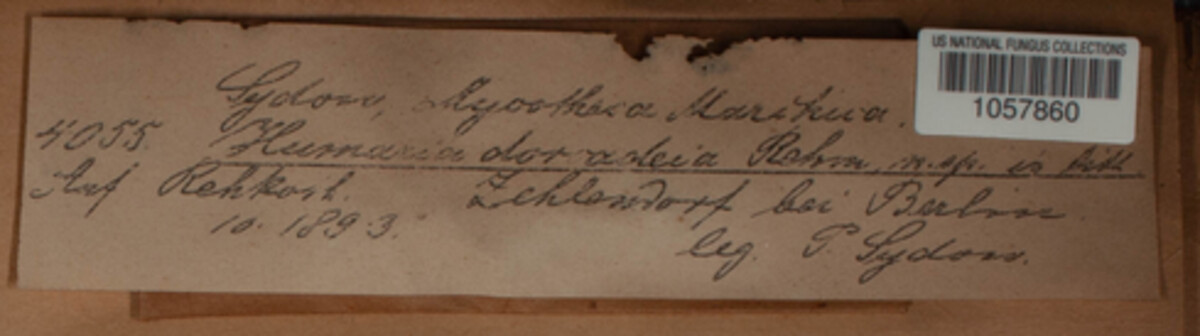 US NATIONAL FUNGUS COLLECTIONS
1057860
Sydow, Mycotheca Marchica.
4055. Humaria dorcadeia Rehm, n. sp. in litt.
Auf Rehkoth. Zehlendorf bei Berlin.
10. 1893. leg. P. Sydow.